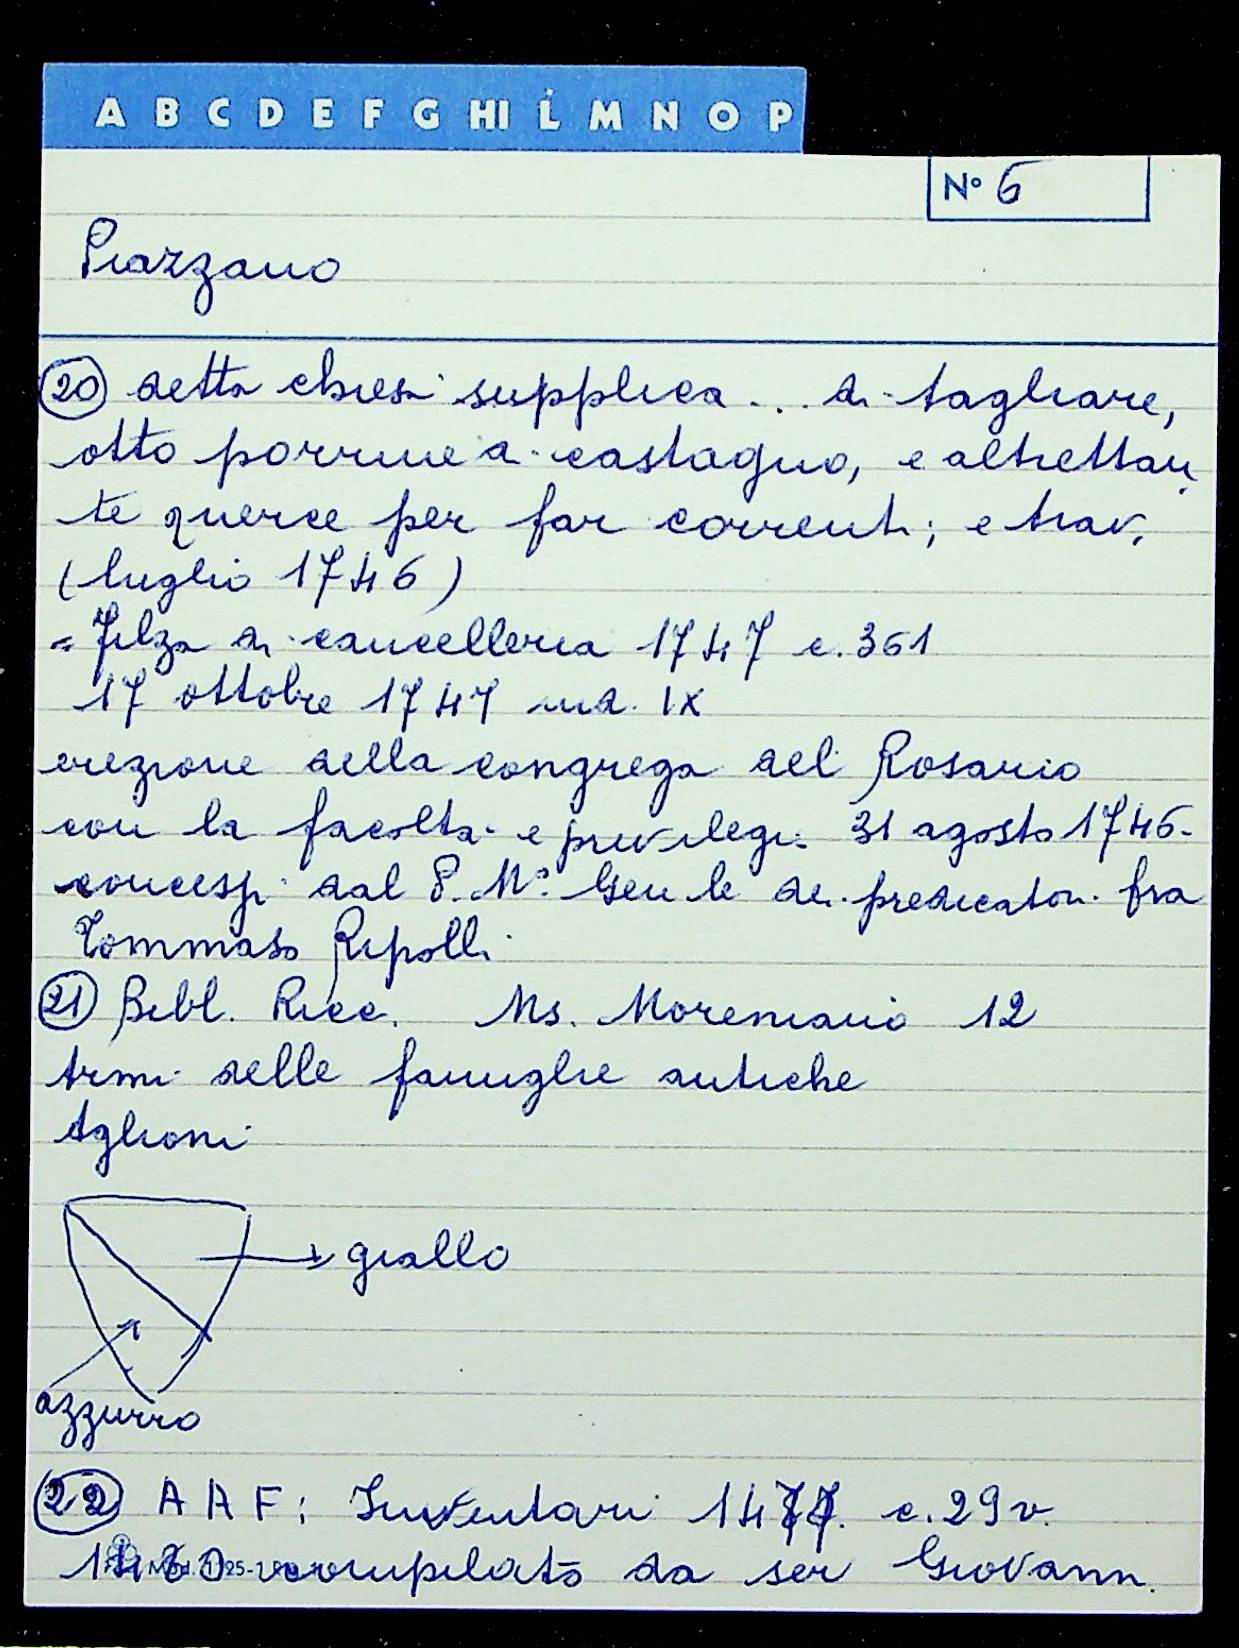 A B C D E F G HI L M N O P
Nº 6
Piazzano
20 detta chiesa supplica... di tagliare,
otto porrine di castagno, e altrettan
te querce per far correnti, e travi
(luglio 1746)
= Filza di cancelleria 1747 c. 361
17 ottobre 1747 ind. IX
erezione della congrega del Rosario
con la facoltà e privilegi 31 agosto 1746
concessi dal P. M.º Gen le dei predicatori fra
Tommaso Ripolli
21 Bibl. Ricc. Ms. Moreniano 12
Armi delle famiglie antiche
Aglioni
giallo
azzurro
22 A A F: Inventari 1477. c. 29 v.
compilato da ser Giovanni